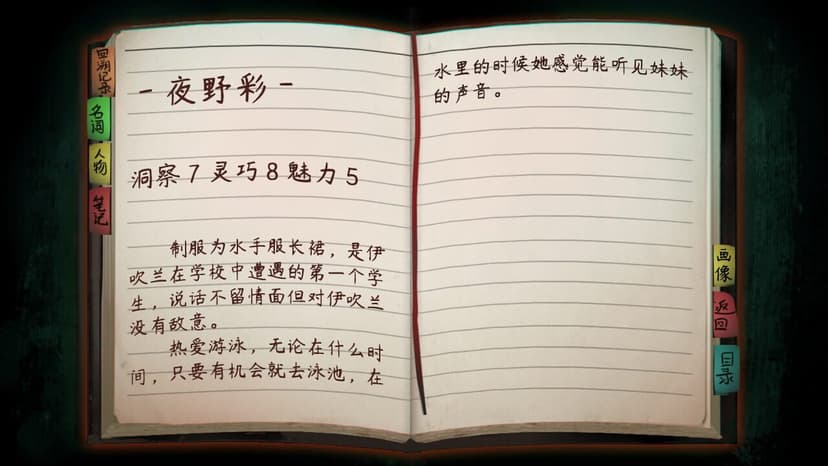 回溯记录
名词
人物
笔记
- 夜野彩 -
洞察 7 灵巧 8 魅力 5
制服为水手服长裙，是伊
吹兰在学校中遭遇的第一个学
生，说话不留情面但对伊吹兰
没有敌意。
热爱游泳，无论在什么时
间，只要有机会就去泳池，在
水里的时候她感觉能听见妹妹
的声音。
画像
返回
目录